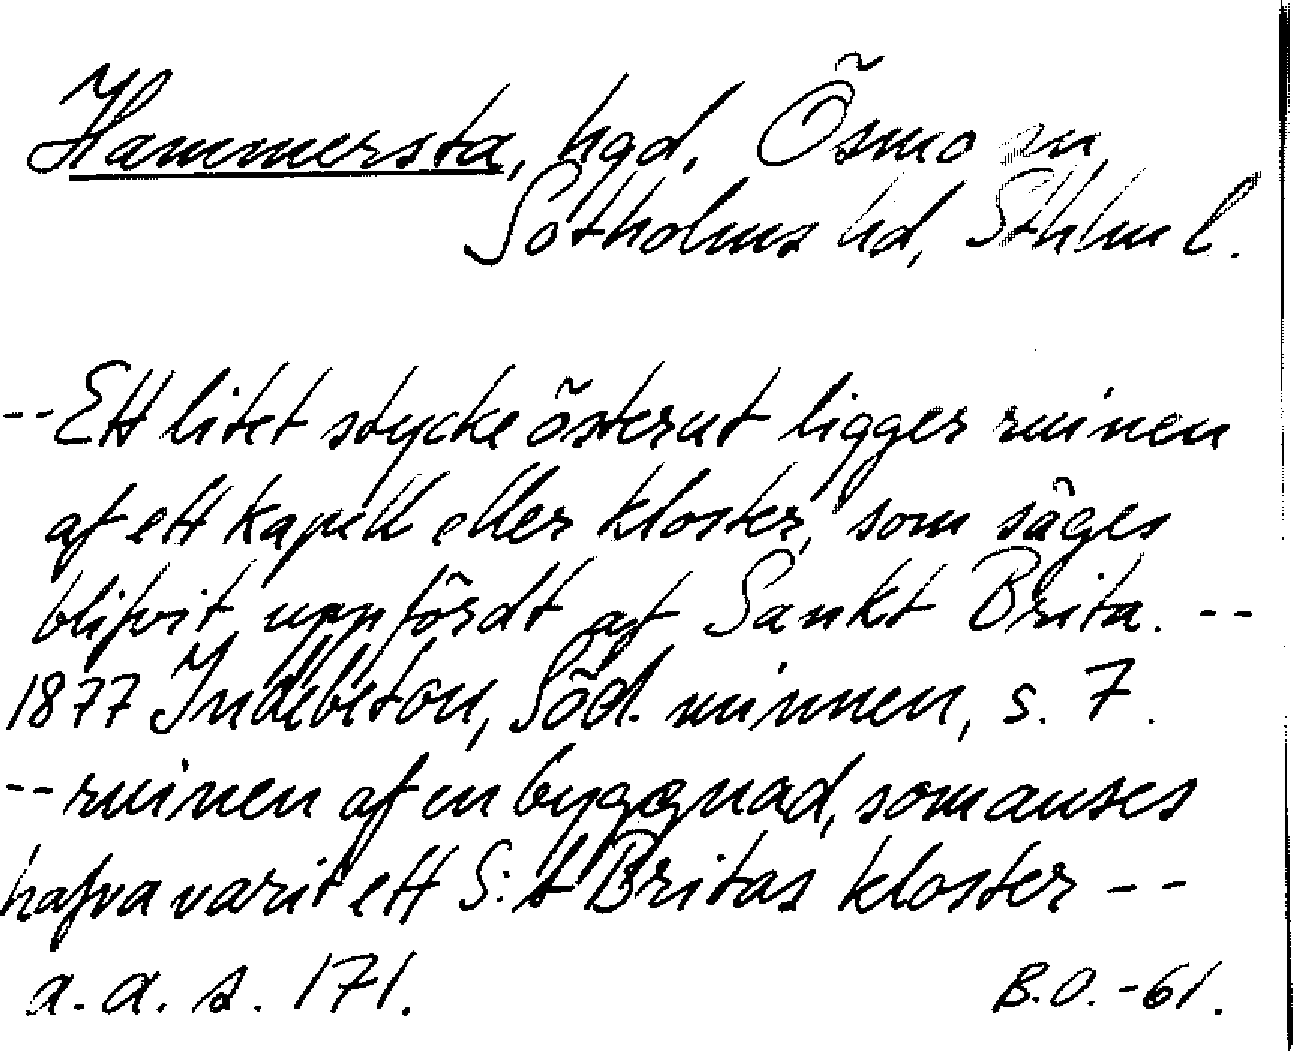 Hammersta, hgd, Ösmo sn,
Sotholms hd, Sthlm l.
-- Ett litet stycke österut ligger ruinen
af ett kapell eller kloster, som säges
blifvit uppfördt af Sankt Brita. --
1877 Indebetou, Söd. minnen, s. 7.
-- ruinen af en byggnad, som anses
hafva varit ett S:t Britas kloster --
a. a. s. 171. B.O. -61.